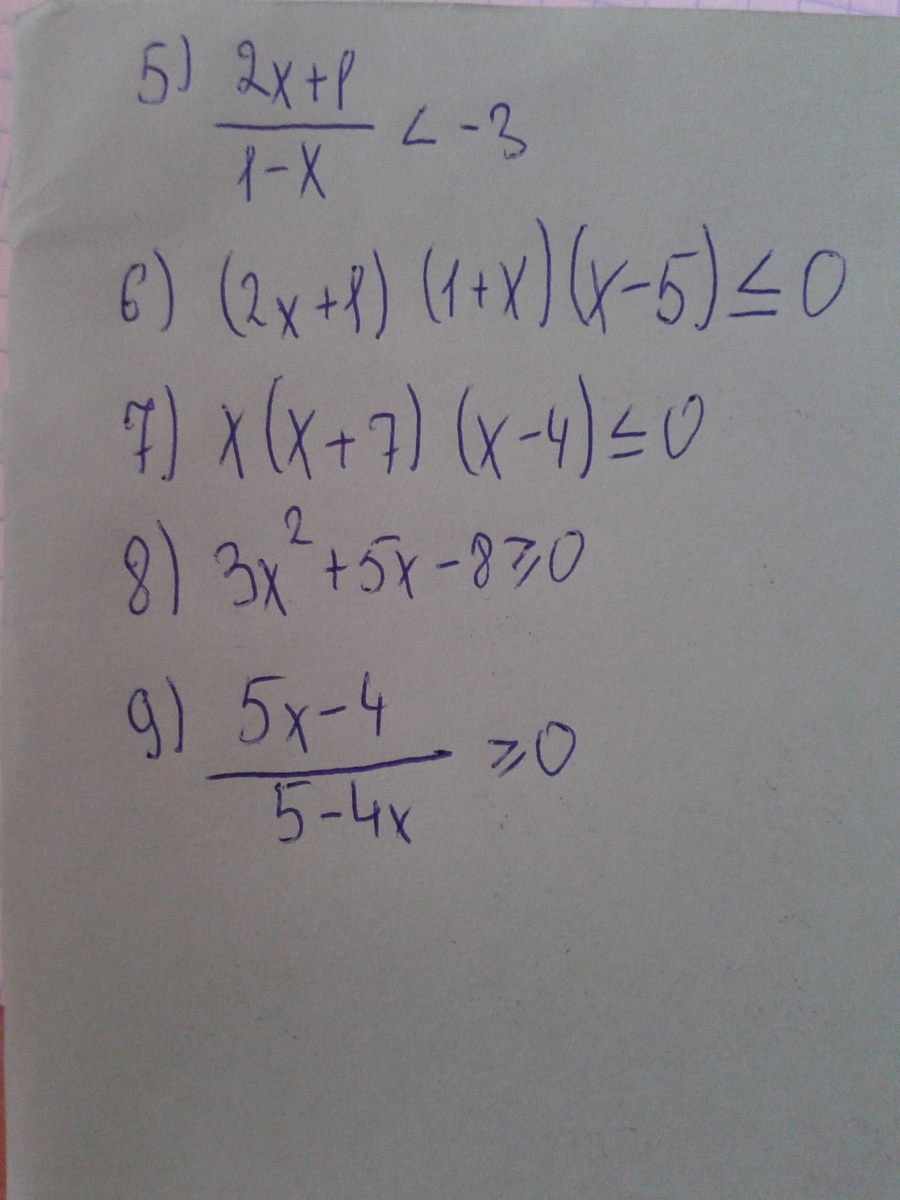 5) \frac{2x+1}{1-x} < -3
6) (2x+1) (1+x)(x-5) ≤ 0
7) x(x+7) (x-4) ≤ 0
8) 3x² + 5x - 8 ⩾ 0
9) \frac{5x-4}{5-4x} ⩾ 0